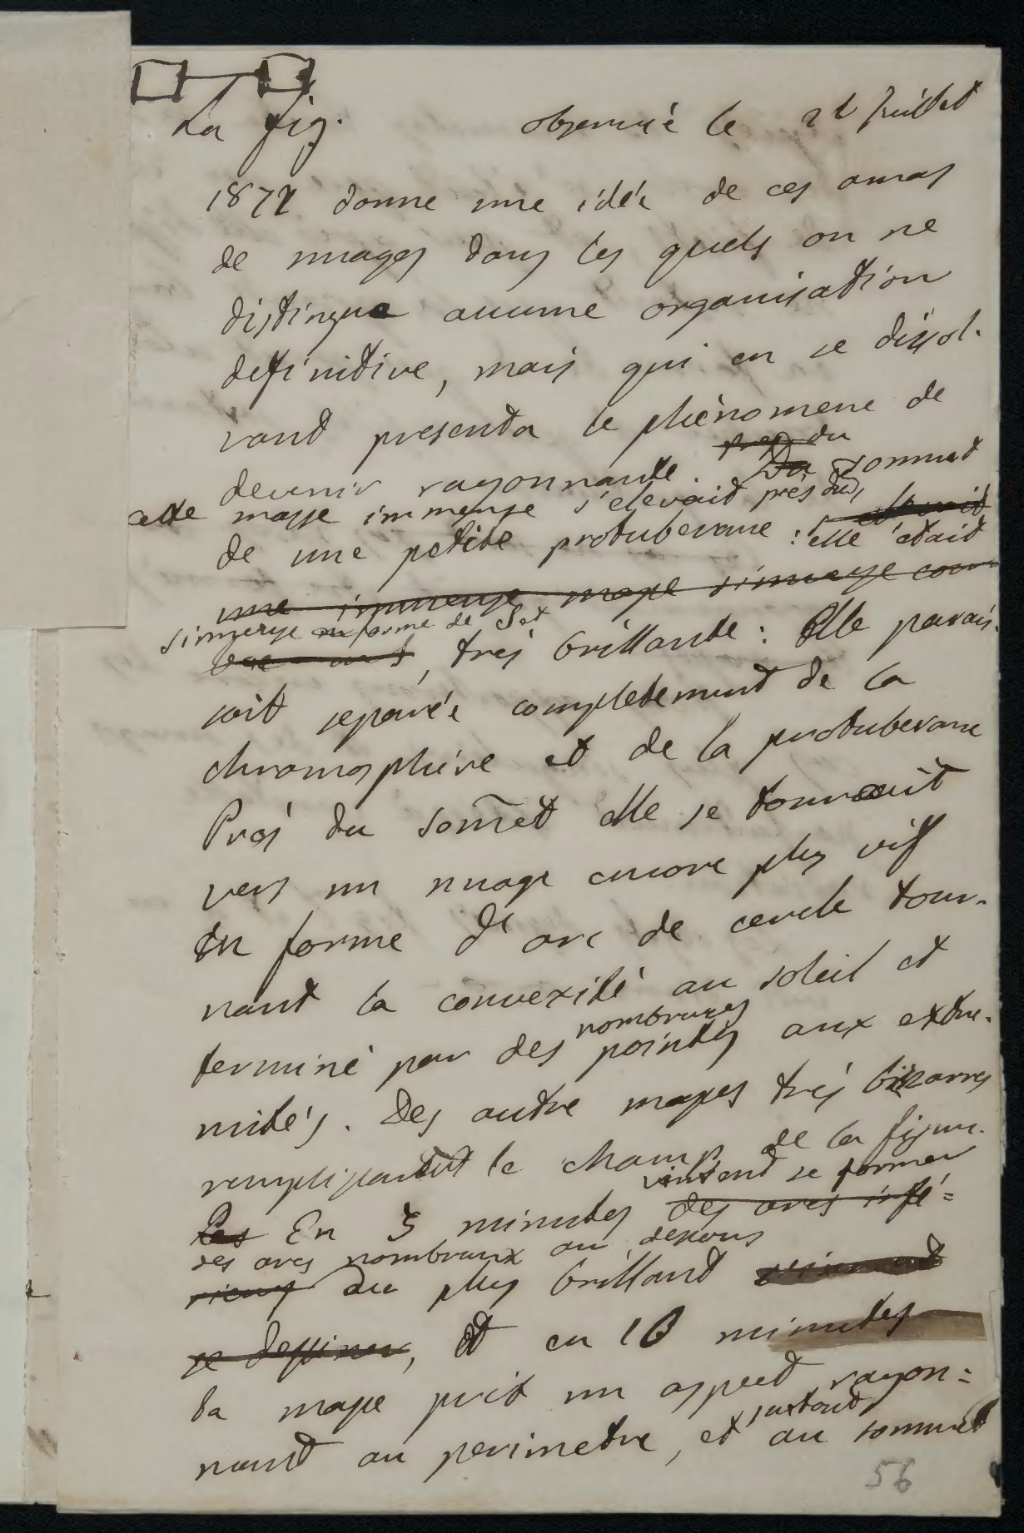 La fig. observée le Juillet
1872 donne une idée de ces amas
de nuages dans les quels on ne
distingue aucune organisation
definitive, mais qui en se dissol-
vant presenta le phénomene de
devenir rayonnante. du sommet
cette masse immense s'elevait près
de une petite protuberance : elle était
une immense masse
s'immense en forme de
très brillante : Elle parais-
sait separée completement de la
chromosphère et de la protuberance
Près du somet elle se tournait
vers un nuage encore plus vif
En forme d'arc de cercle tour-
nant la convexité au soleil et
nombruses
terminé par des pointes aux extre-
mités. Des autre masses très bizarres
remplissait le champ de la figure.
vinrent se former
Des En 5 minutes des arcs infé=
des arcs nombreux au dessous
rieurs du plus brillant
se dessiner, et en 10 minutes
la masse prit un aspect rayon=
surtout
nant au perimetre, et au sommet
56